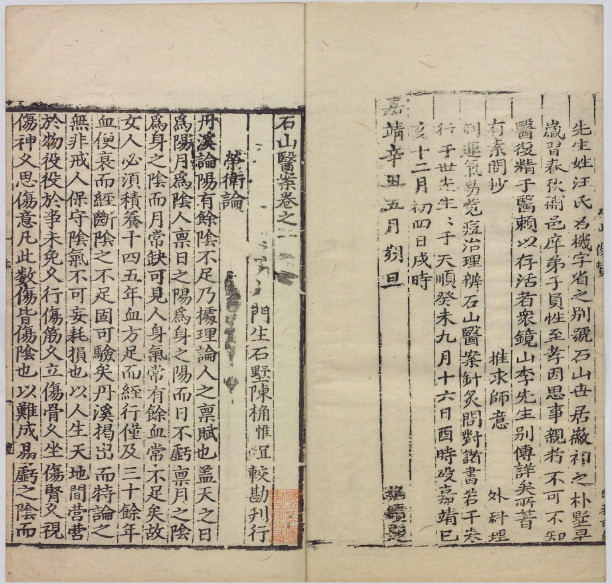 先生姓汪氏名機字省之別號石山世居徽祁之朴墅早
歲習春秋補邑庠弟子員性至孝因思事親者不可不知
醫復精于醫賴以存活者衆鏡山李先生別傳詳矣所著
有素問抄 推求師意 外科理
例運氣易覽痘治理辨石山醫案針灸問對諸書若干卷
行于世先生〻于天順癸未九月十六日酉時歿嘉靖已
亥十二月初四日戌時
嘉靖辛丑五月朔旦
石山醫案卷之二
門生石墅陳桷惟宜較勘刊行
榮衛論
丹溪論陽有餘陰不足乃據理論人之稟賦也盖天之日
為陽月為陰人稟日之陽為身之陽而日不虧稟月之陰
為身之陰而月常缺可見人身氣常有餘血常不足矣故
女人必須積養十四五年血方足而經行僅及三十餘年
血便衰而經斷陰之不足固可驗矣丹溪揭出而特論之
無非戒人保守陰氣不可妄耗損也以人生天地間營營
於物役役於事未免久行傷筋久立傷骨久坐傷腎久視
傷神久思傷意凡此数傷皆傷陰也以難成易虧之陰而